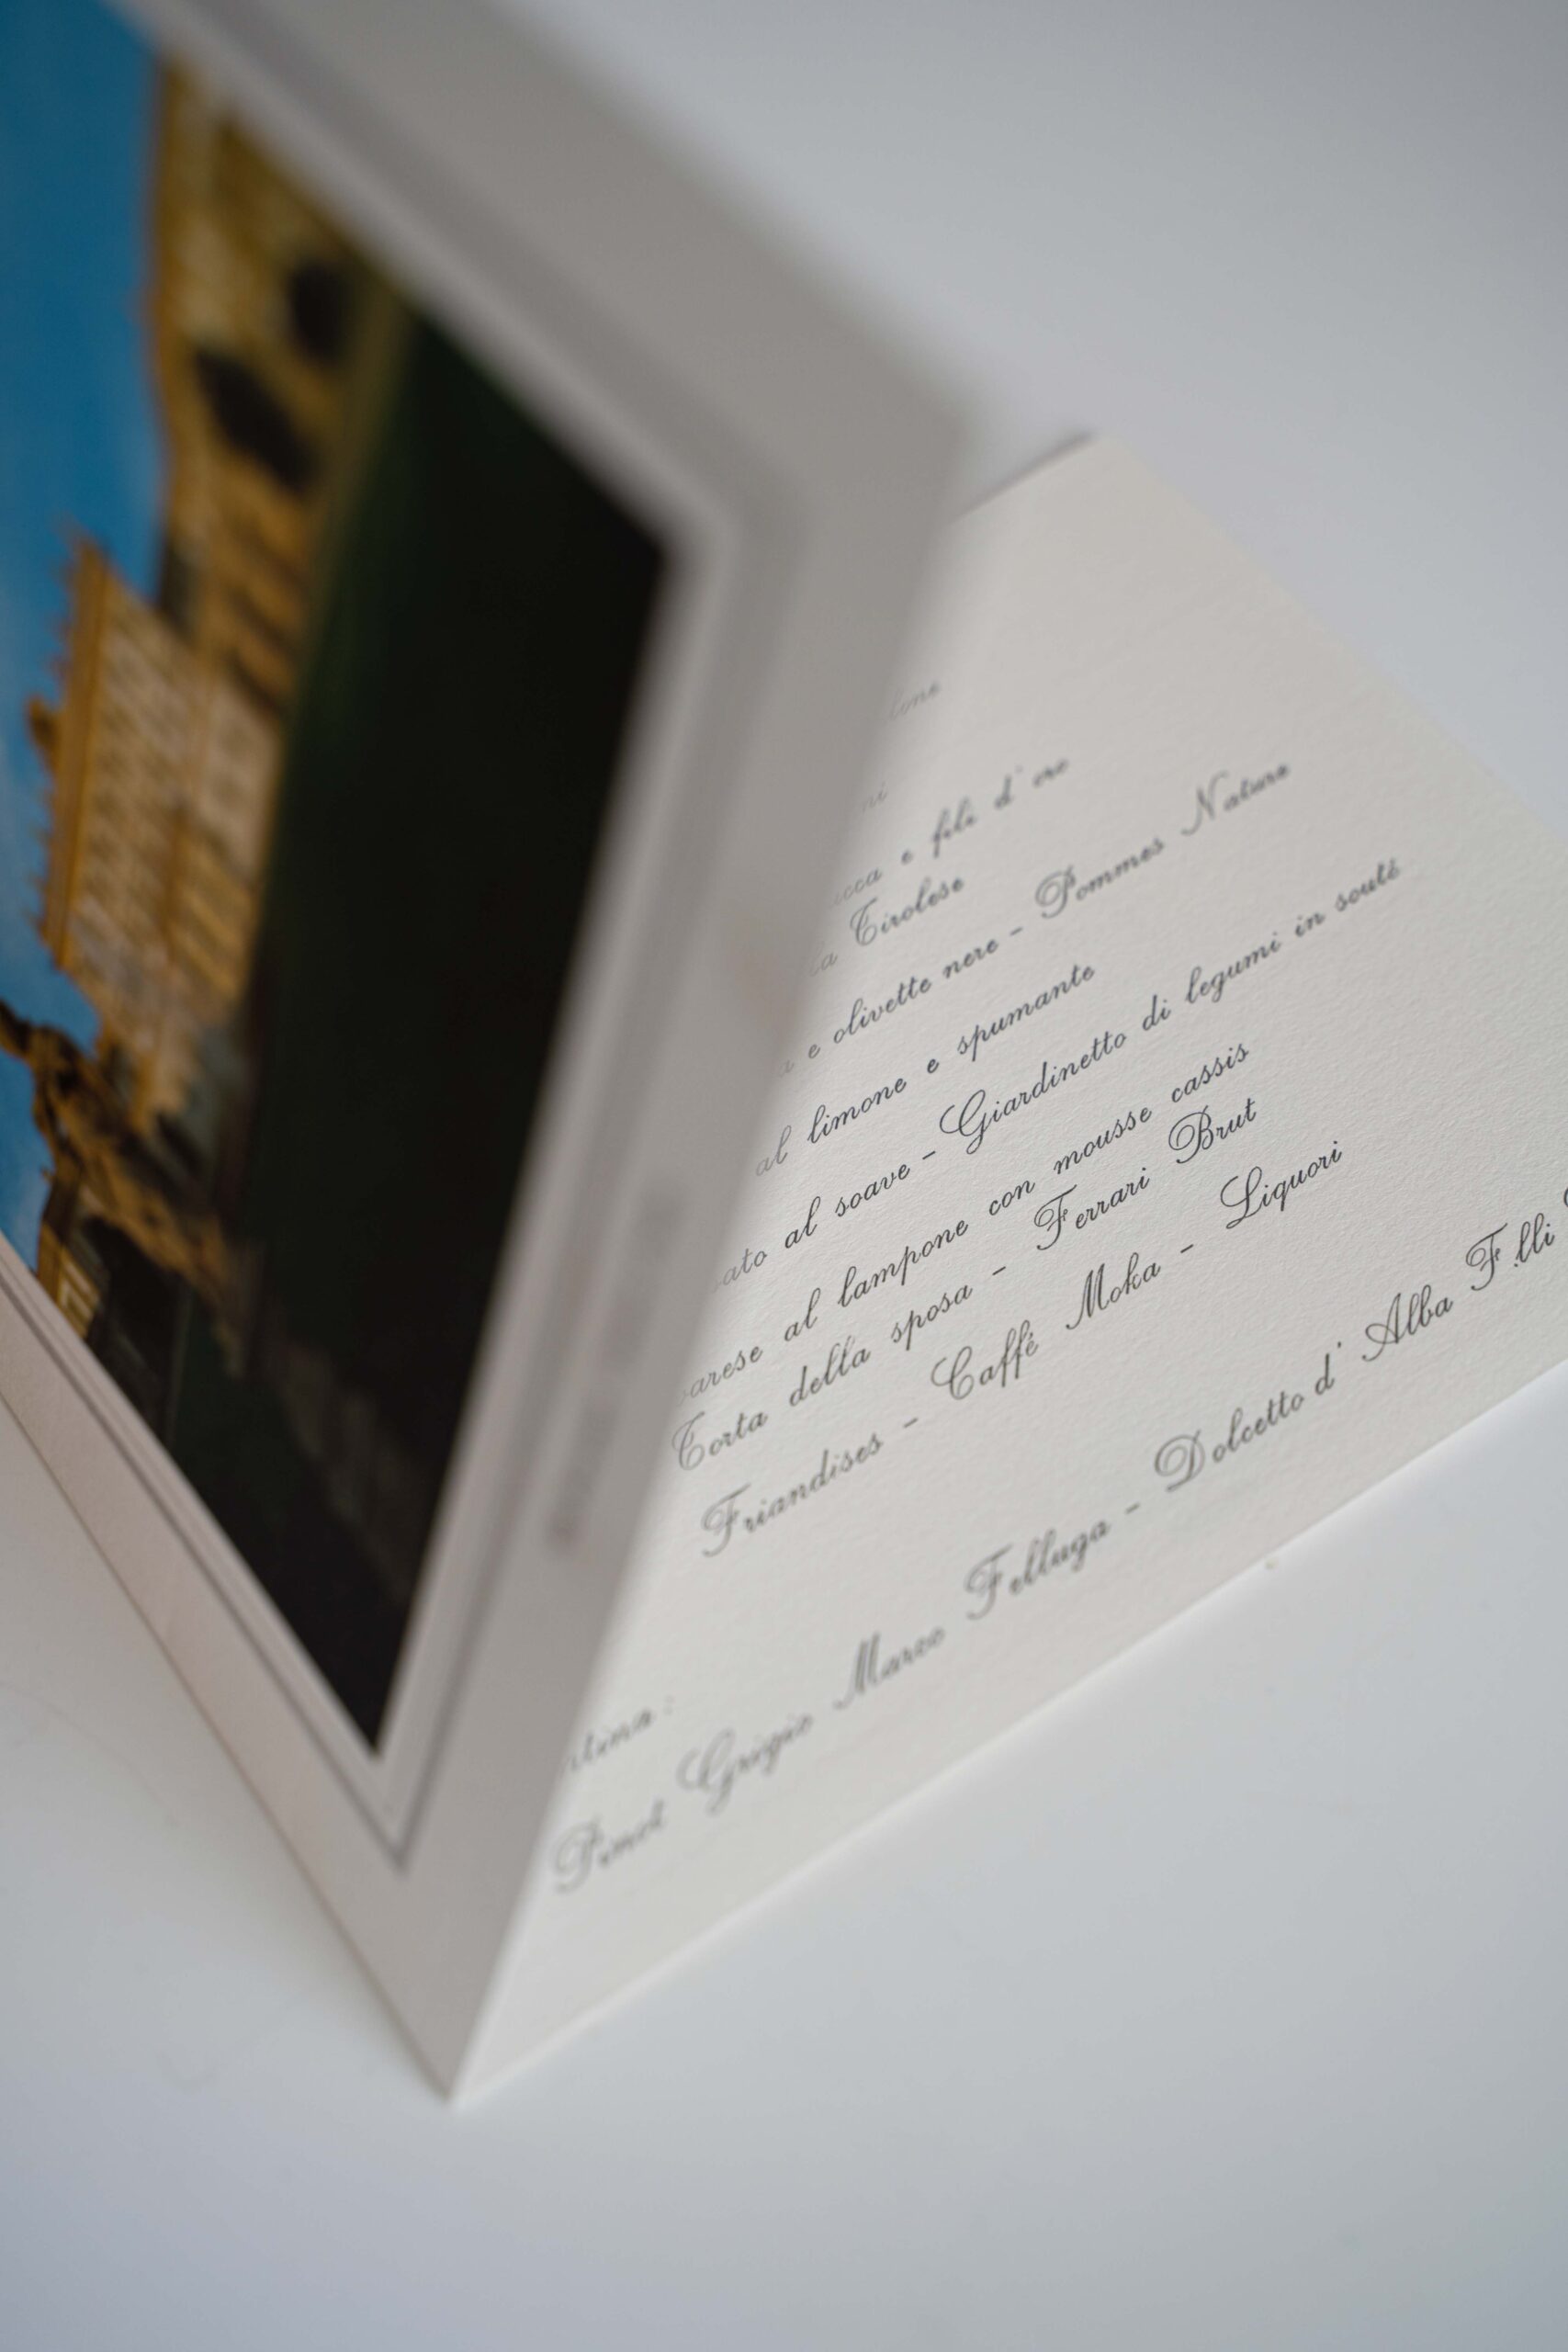 e fili d' oro
Tirolese
e olivette nere - Pommes Nature
al limone e spumante
al soave - Giardinetto di legumi in souté
al lampone con mousse cassis
Torta della sposa - Ferrari Brut
Friandises - Caffé Moka - Liquori
Pinot Grigio Marco Felluga - Dolcetto d' Alba F.lli